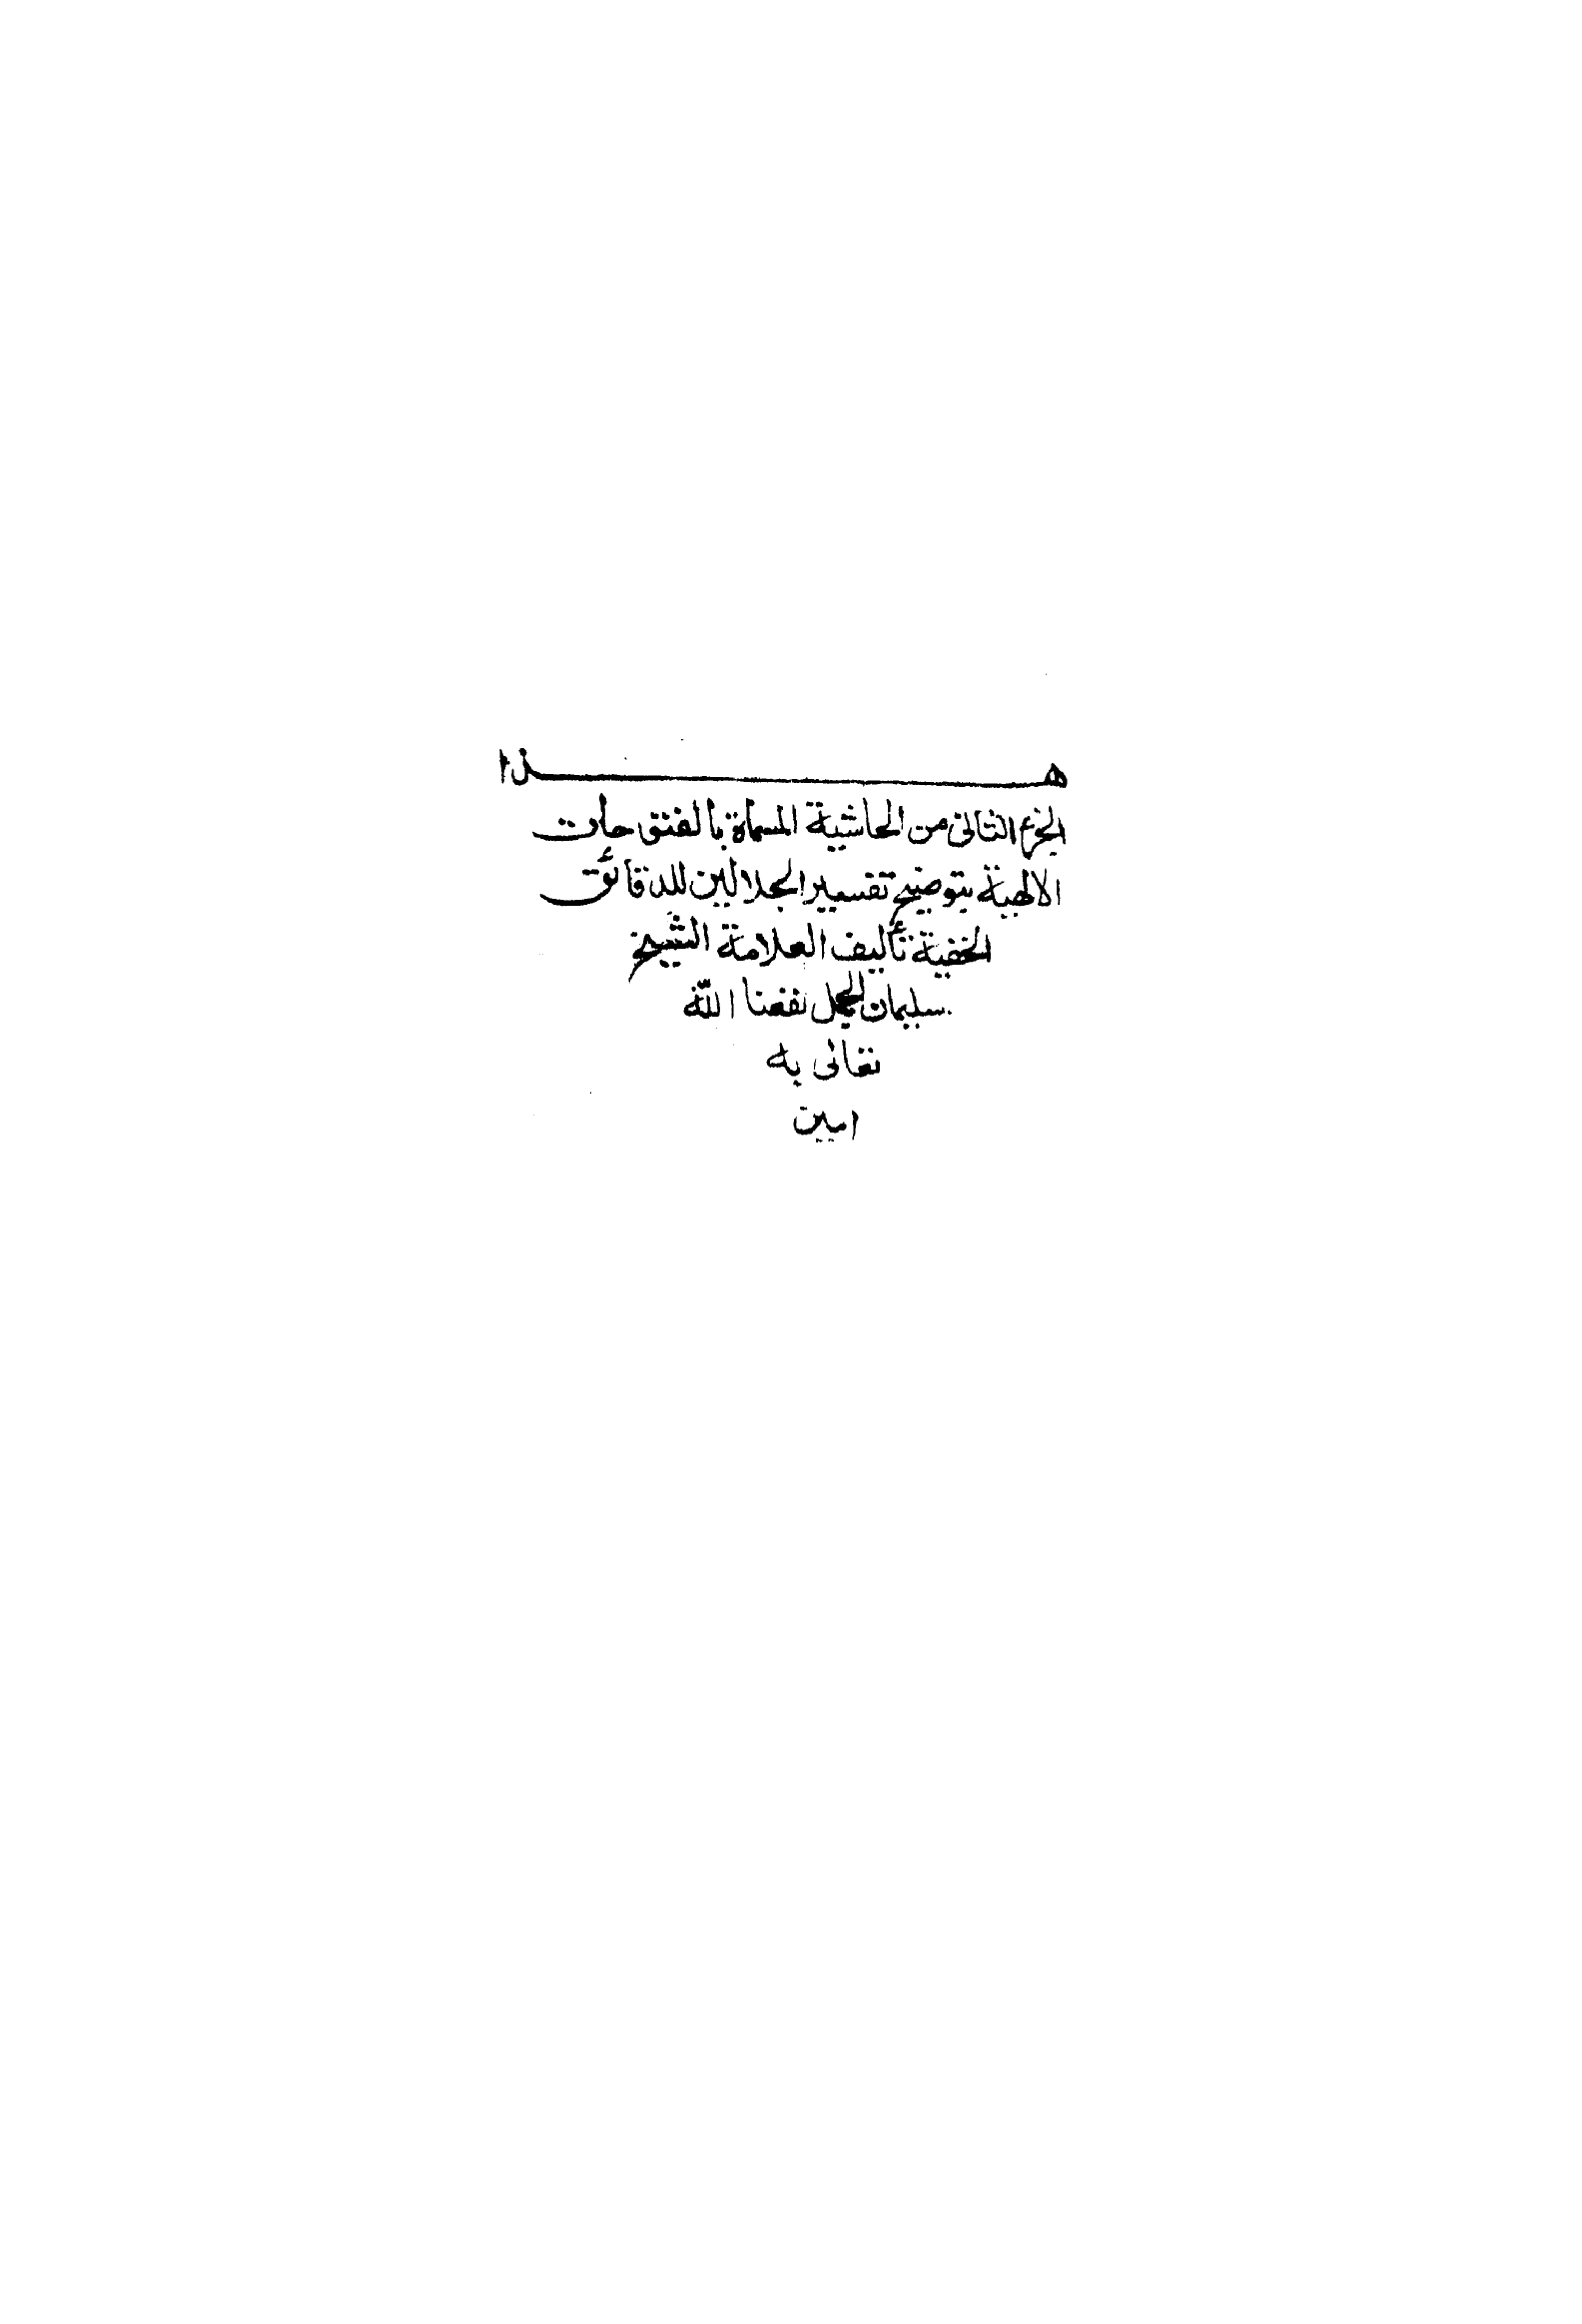 هـــــــــــذا
الجزء الثانى من الحاشية المسماة بالفتوحات
الالهية بتوضيح تفسير الجلالين للدقائق
الخفية تأليف العلامة الشيخ
سليمان الجمل نفعنا الله
تعالى به
امين